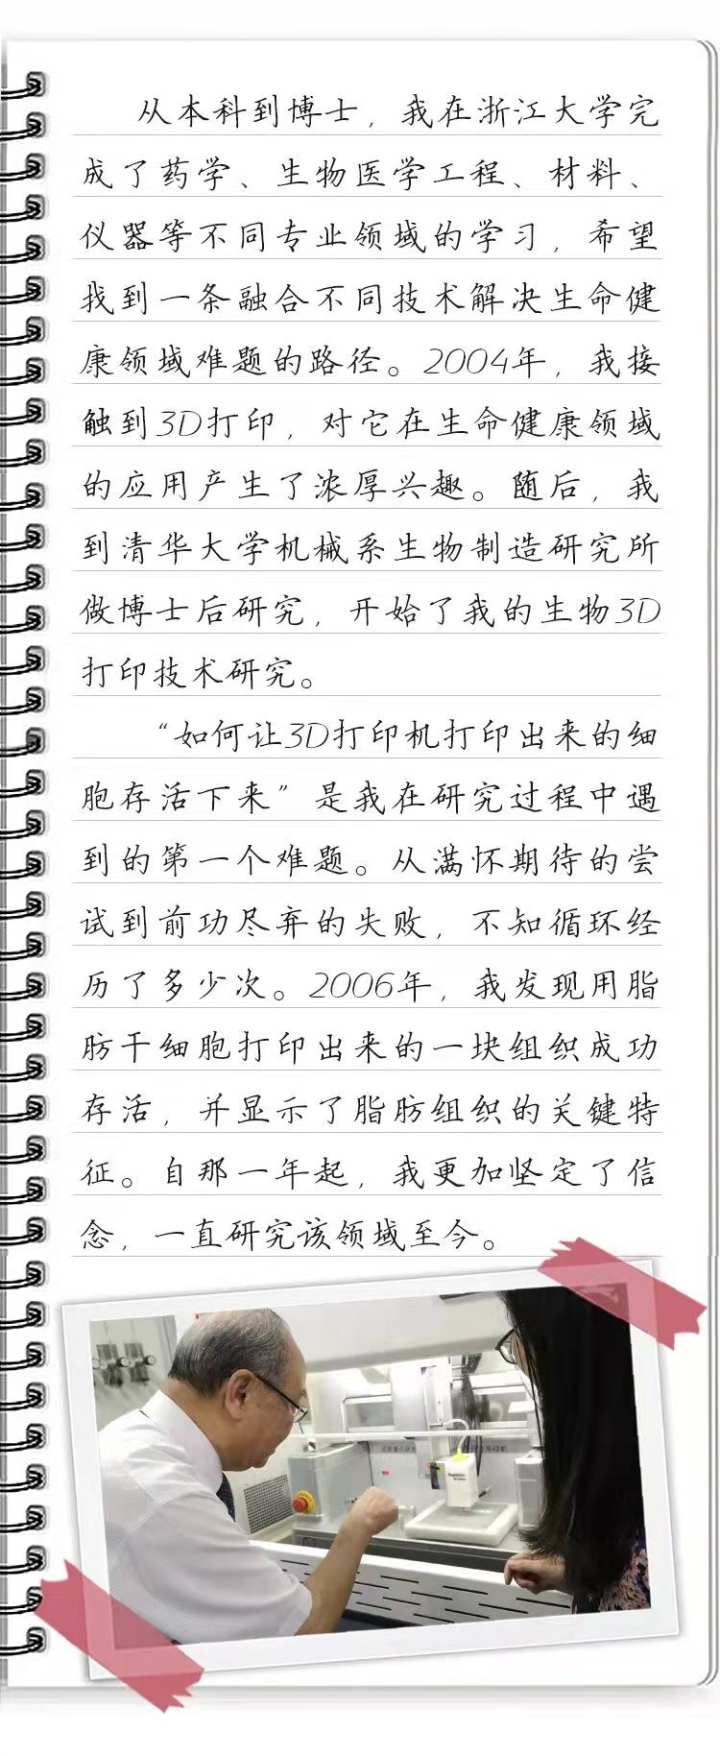 从本科到博士，我在浙江大学完
成了药学、生物医学工程、材料、
仪器等不同专业领域的学习，希望
找到一条融合不同技术解决生命健
康领域难题的路径。2004年，我接
触到3D打印，对它在生命健康领域
的应用产生了浓厚兴趣。随后，我
到清华大学机械系生物制造研究所
做博士后研究，开始了我的生物3D
打印技术研究。
“如何让3D打印机打印出来的细
胞存活下来”是我在研究过程中遇
到的第一个难题。从满怀期待的尝
试到前功尽弃的失败，不知循环经
历了多少次。2006年，我发现用脂
肪干细胞打印出来的一块组织成功
存活，并显示了脂肪组织的关键特
征。自那一年起，我更加坚定了信
念，一直研究该领域至今。